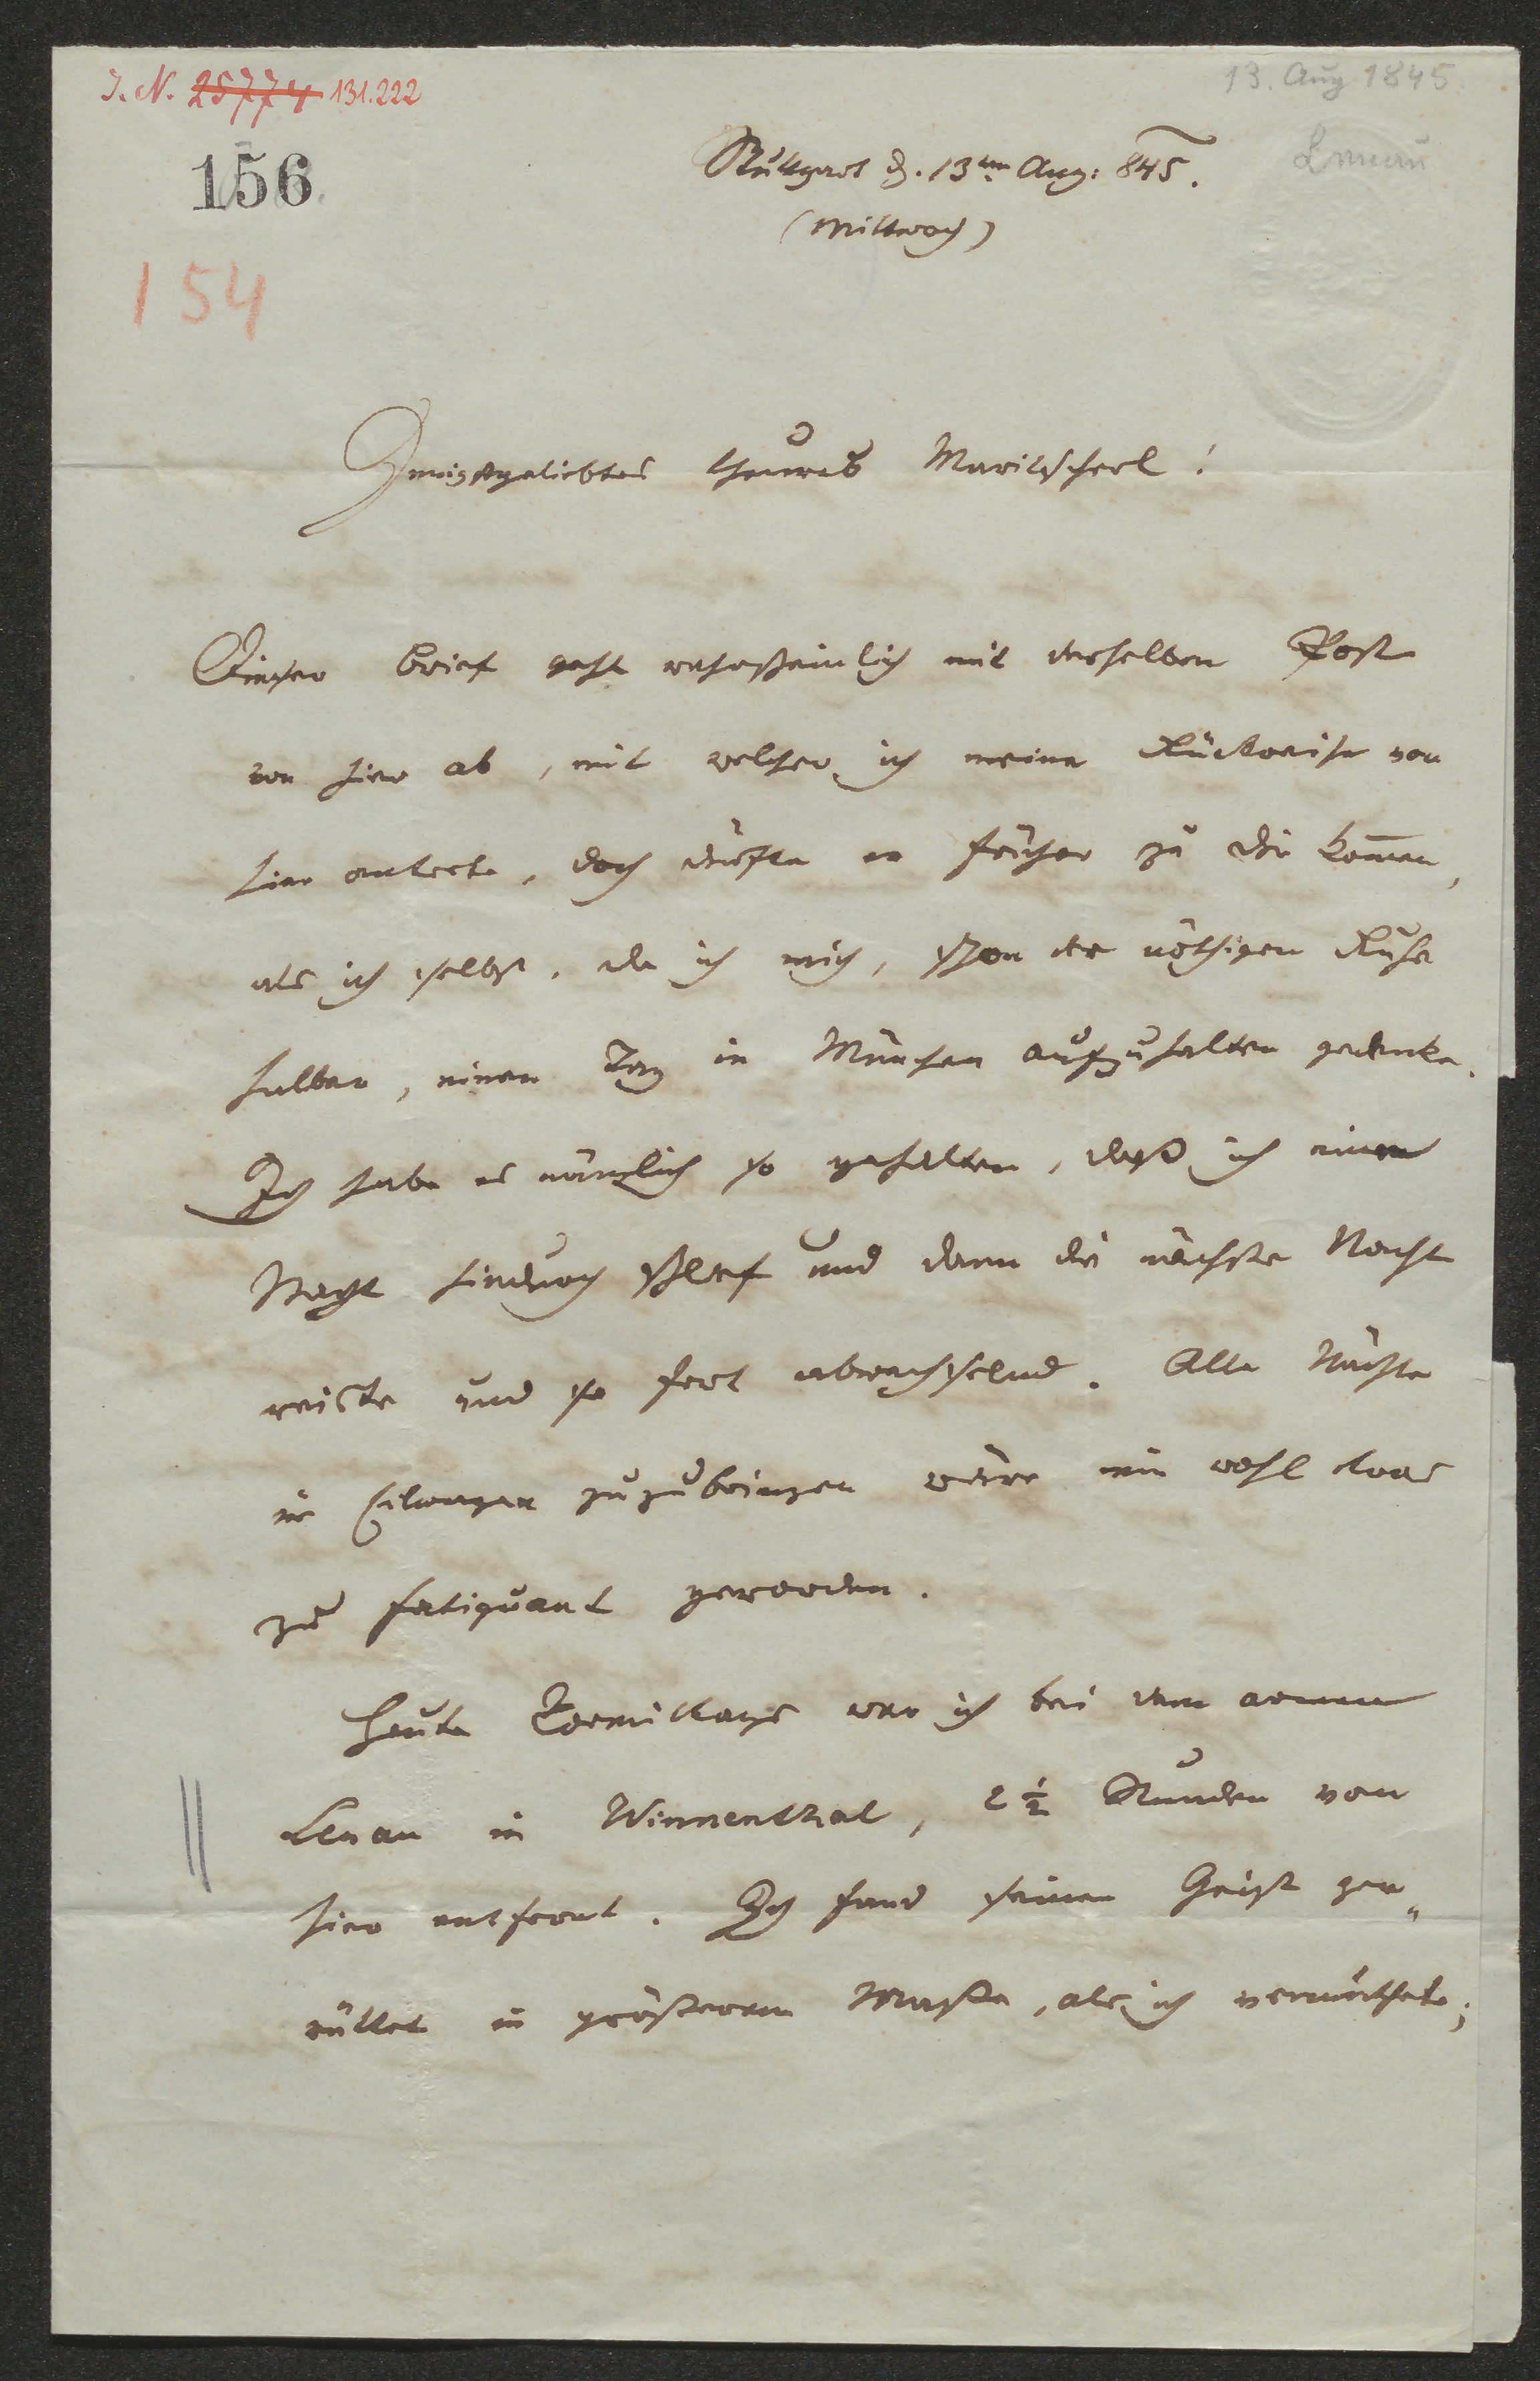 J. N. 25774 131.222
13. Aug 1845
156
Lenau
Stuttgart d. 13ten Aug: 845.
(Mittwoch)
154
Innigstgeliebtes theures Maritscherl!
Dieser Brief geht wahrscheinlich mit derselben Post
von hier ab, mit welcher ich meine Rückreise von
hier antrete, doch dürfte er früher zu Dir kommen,
als ich selbst, da ich mich, schon der nöthigen Ruhe
halber, einen Tag in München aufzuhalten gedenke.
Ich habe es nämlich so gehalten, daß ich eine
Nacht hindurch schlief und dann die nächste Nacht
reiste und so fort abwechselnd. Alle Nächte
im Eilwagen zuzubringen wäre mir wohl etwas
zu fatiguant geworden.
Heute Vormittags war ich bei dem armen
Lenau in Winnenthal, 2 1/2 Stunden von
hier entfernt. Ich fand seinen Geist zer„
rüttet in größerem Maße, als ich vermuthete;